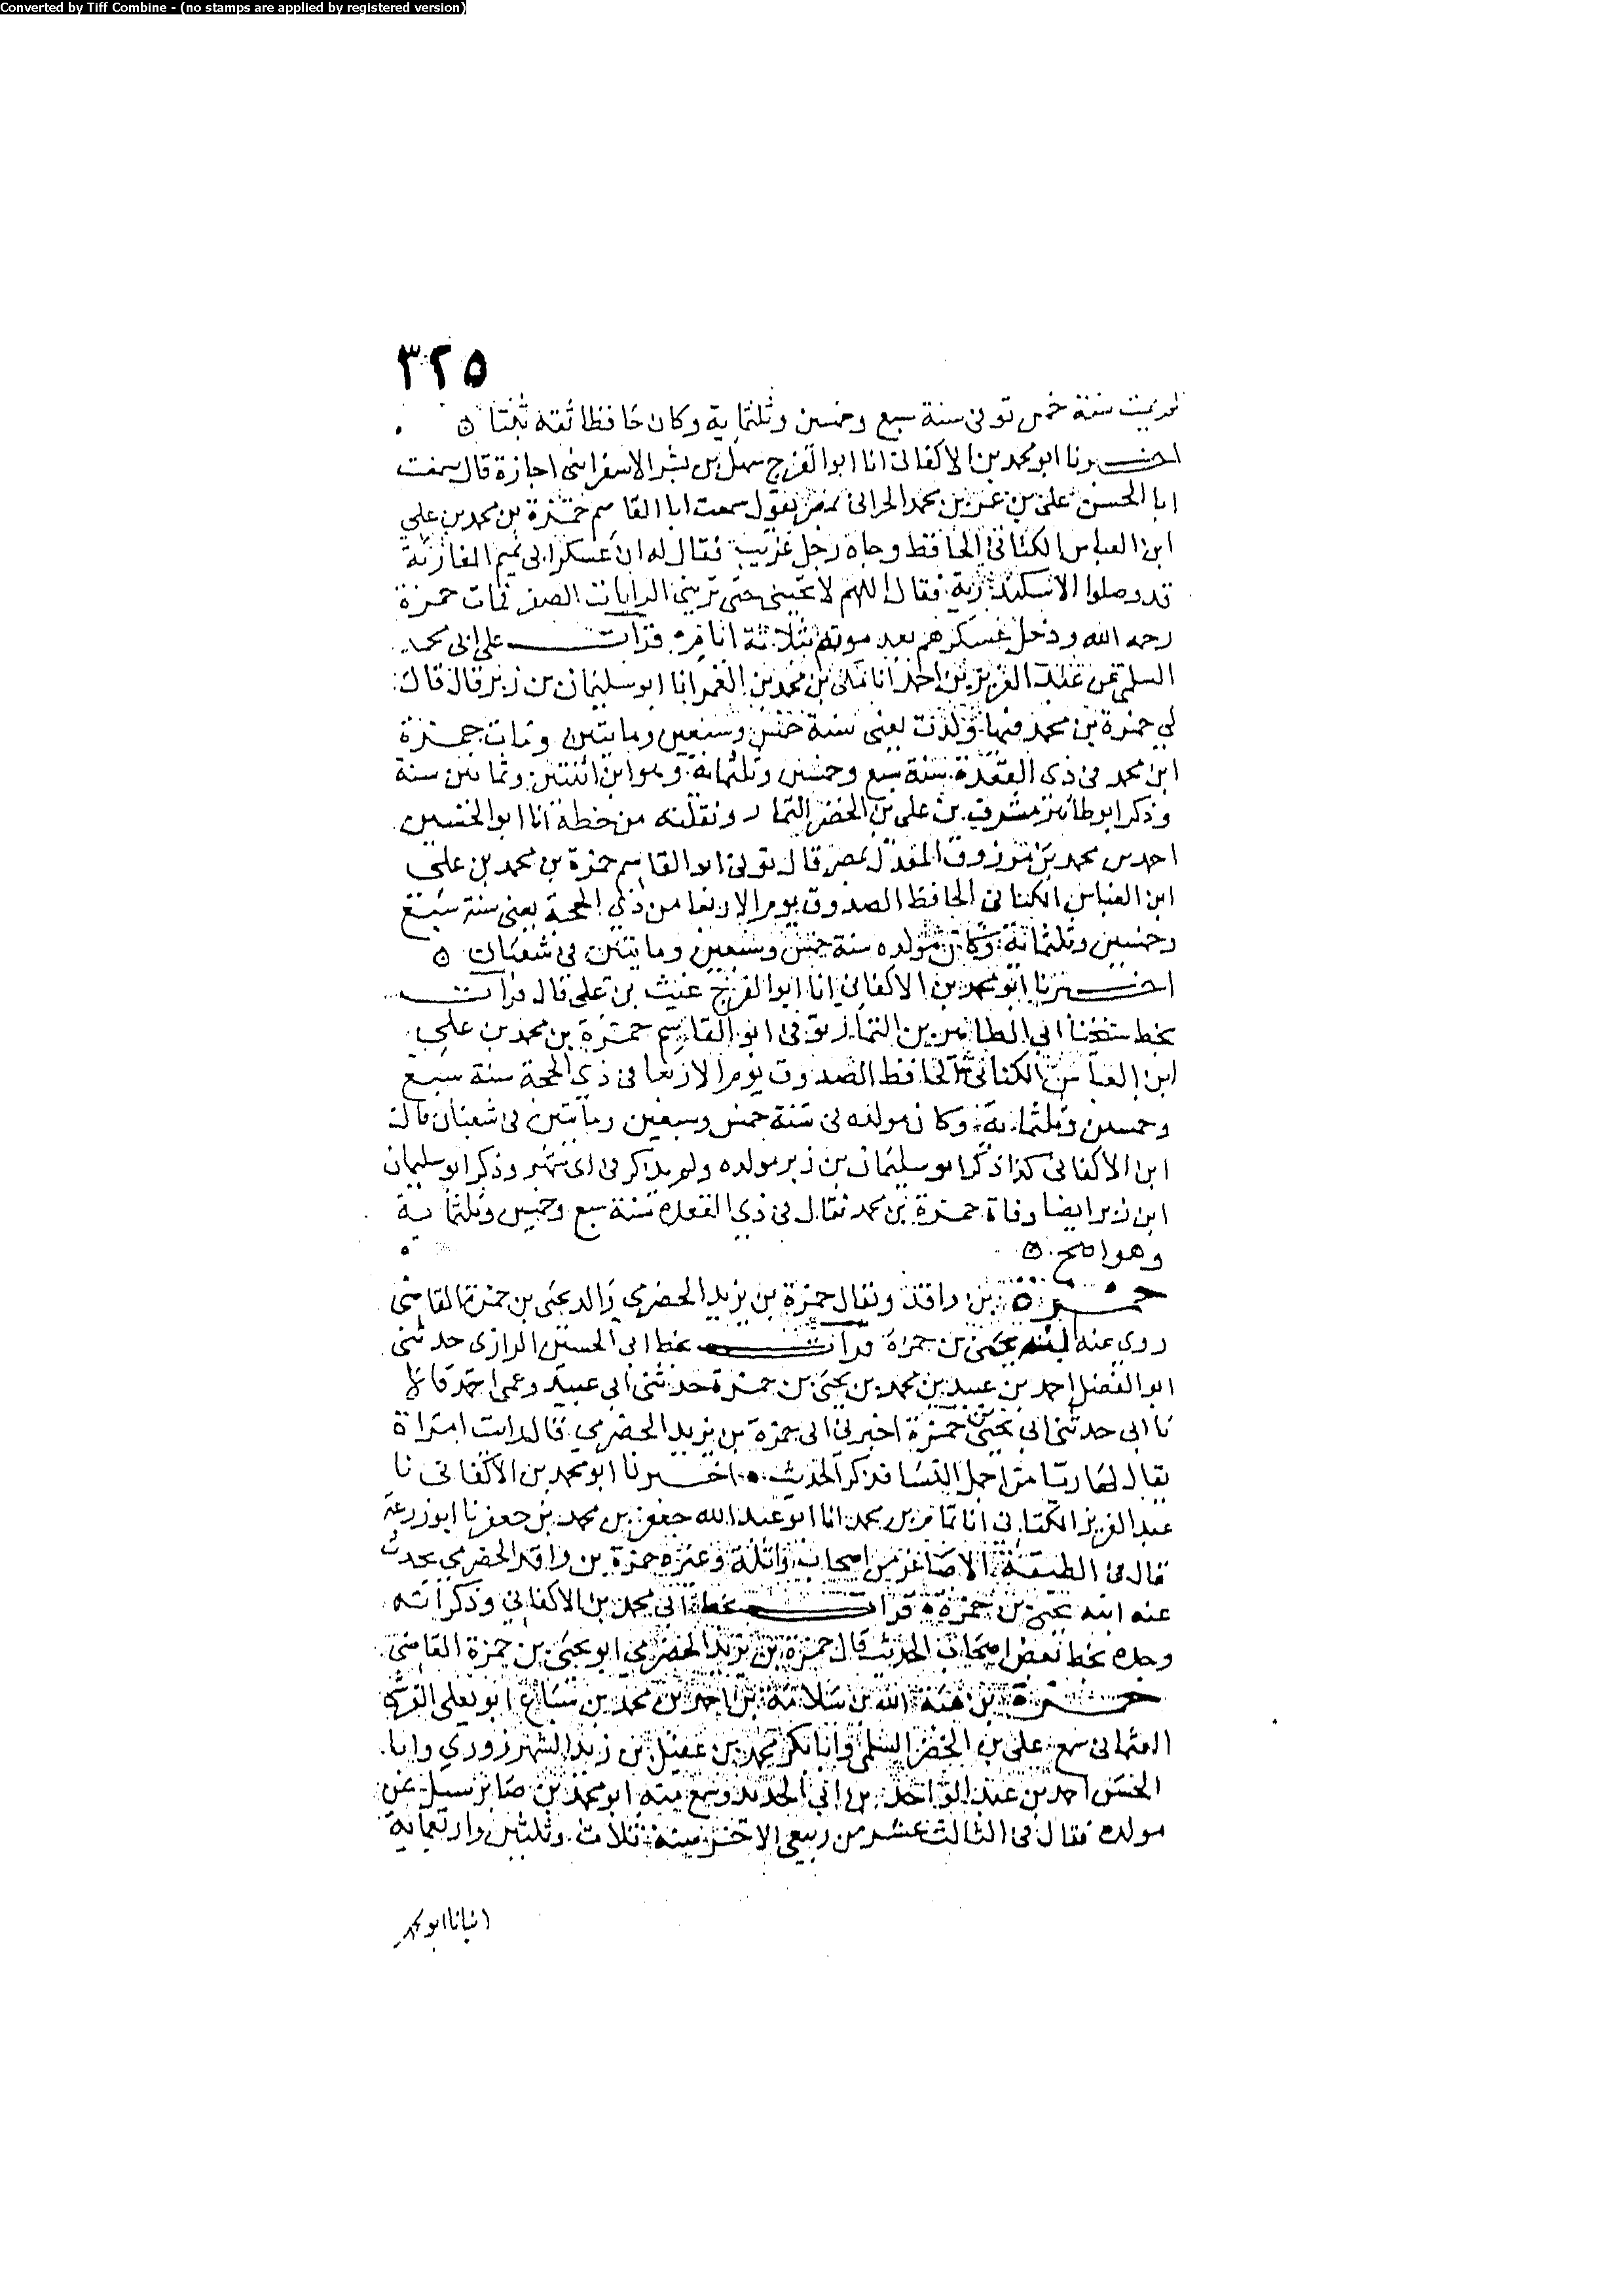 Converted by Tiff Combine - (no stamps are applied by registered version)
٣٢٥
سنة خمس توفى سنة سبع وخمسين وثلثماية وكان حافظا ثقة ثبتا ه
اخبرنا ابو محمد بن الاكفانى انا ابو الفرج سهل بن بشر الاسفراينى اجازة قال سمعت
ابا الحسن على بن عمر بن محمد الحرانى بمصر يقول سمعت ابا القاسم حمزة بن محمد بن علي
ابن العباس الكنانى الحافظ وجاه رجل غريب فقال له ان عسكر ابى تميم المغاربة
قد وصلوا الاسكندرية فقال اللهم لا تحينى حتى تريني الرايات الصفر فمات حمزة
رحمه الله ودخل عسكرهم بعد موته بثلاثة ايام قرات على ابى محمد
السلمى عن عبد العزيز بن احمد انا مكى بن محمد بن الغمر انا ابو سليمان بن زبر قال قال
لي حمزة بن محمد فيها ولدت يعنى سنة خمس وسبعين ومايتين ومات حمزة
ابن محمد فى ذى القعدة سنة سبع وخمسين وثلثماية وهو ابن اثنتين وثمانين سنة
وذكر ابو طاهر مشرف بن على بن الخضر التمار ونقلته من خطه انا ابو الحسين
احمد بن محمد بن مرزوق المعدل بمصر قال توفى ابو القاسم حمزة بن محمد بن على
ابن العباس الكنانى الحافظ الصدوق يوم الاربعا من ذي الحجة يعنى سنة سبع
وخمسين وثلثماية وكان مولده سنة خمس وسبعين ومايتين فى شعبان ه
اخبرنا ابو محمد بن الاكفاني انا ابو الفرج غيث بن على قال قرات
بخط شيخنا ابى الطاهر بن التمار توفى ابو القاسم حمزة بن محمد بن علي
ابن العباس الكنانى الحافظ الصدوق يوم الاربعا فى ذي الحجة سنة سبع
وخمسين وثلثماية وكان مولده فى سنة خمس وسبعين ومايتين فى شعبان قال
ابن الاكفانى كذا ذكر ابو سليمان بن زبر مولده ولم يذكر فى اى شهر وذكر ابو سليمان
ابن زبر ايضا وفاة حمزة بن محمد فقال فى ذي القعده سنة سبع وخمسين وثلثماية
وهو اصح ه
حمزة بن واقد ويقال حمزة بن يزيد الحضرمي والد يحيى بن حمزة القاضى
روى عنه ابنه يحيى بن حمزة قرات بخط ابى الحسين الرازى حدثنى
ابو الفضل احمد بن عبيد بن محمد بن يحيى بن حمزة حدثنى ابى عبيد وعمى احمد قالا
نا ابى حدثنى ابى يحيى بن حمزة اخبرنى ابى حمزة بن يزيد الحضرمي قال رايت امراة
يقال لها ريا من اجمل النسا فذكر الحديث ه اخبرنا ابو محمد بن الاكفانى نا
عبد العزيز الكتاني انا تمام بن محمد انا ابو عبد الله جعفر بن محمد بن جعفر نا ابو زرعة
قال فى الطبقة الاصاغر من اصحاب واثلة وغيره حمزة بن واقد الحضرمي يحدث
عنه ابنه يحيى بن حمزة ه قرات بخط ابى محمد بن الاكفاني وذكر انه
وجده بخط بعض اصحاب الحديث قال حمزة بن يزيد الحضرمي ابو يحيى بن حمزة القاضى
حمزة بن هبة الله بن سلامة بن احمد بن محمد بن ابو يعلى القرشى
العثمانى سمع على بن الخضر السلمى وابا بكر محمد بن عقيل بن زيد الشهرزوري وابا
الحسن احمد بن عبد الواحد بن ابى الحديد وسمع منه ابو محمد بن صابر سيل عن
مولده فقال فى الثالث عشر من ربيع الاخر سنة ثلاث وثلثين واربعماية
انبانا ابو محمد